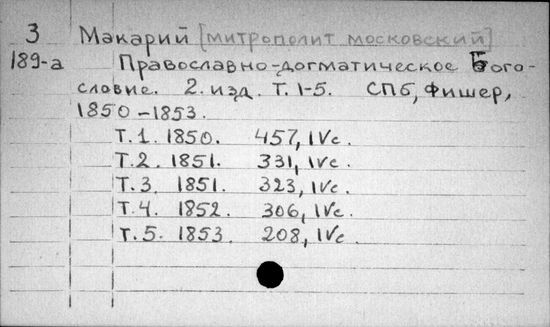 3 Макарий [митрополит московский]
189-а Православно-догматическое Бого-
словие. 2. изд. Т. 1-5. СПб, Фишер,
1850-1853.
Т.1. 1850. 457, IVс.
Т.2. 1851. 331, IVс.
Т.3. 1851. 323, IVс.
Т.4. 1852. 306, IVс.
Т.5. 1853. 208, IVс.